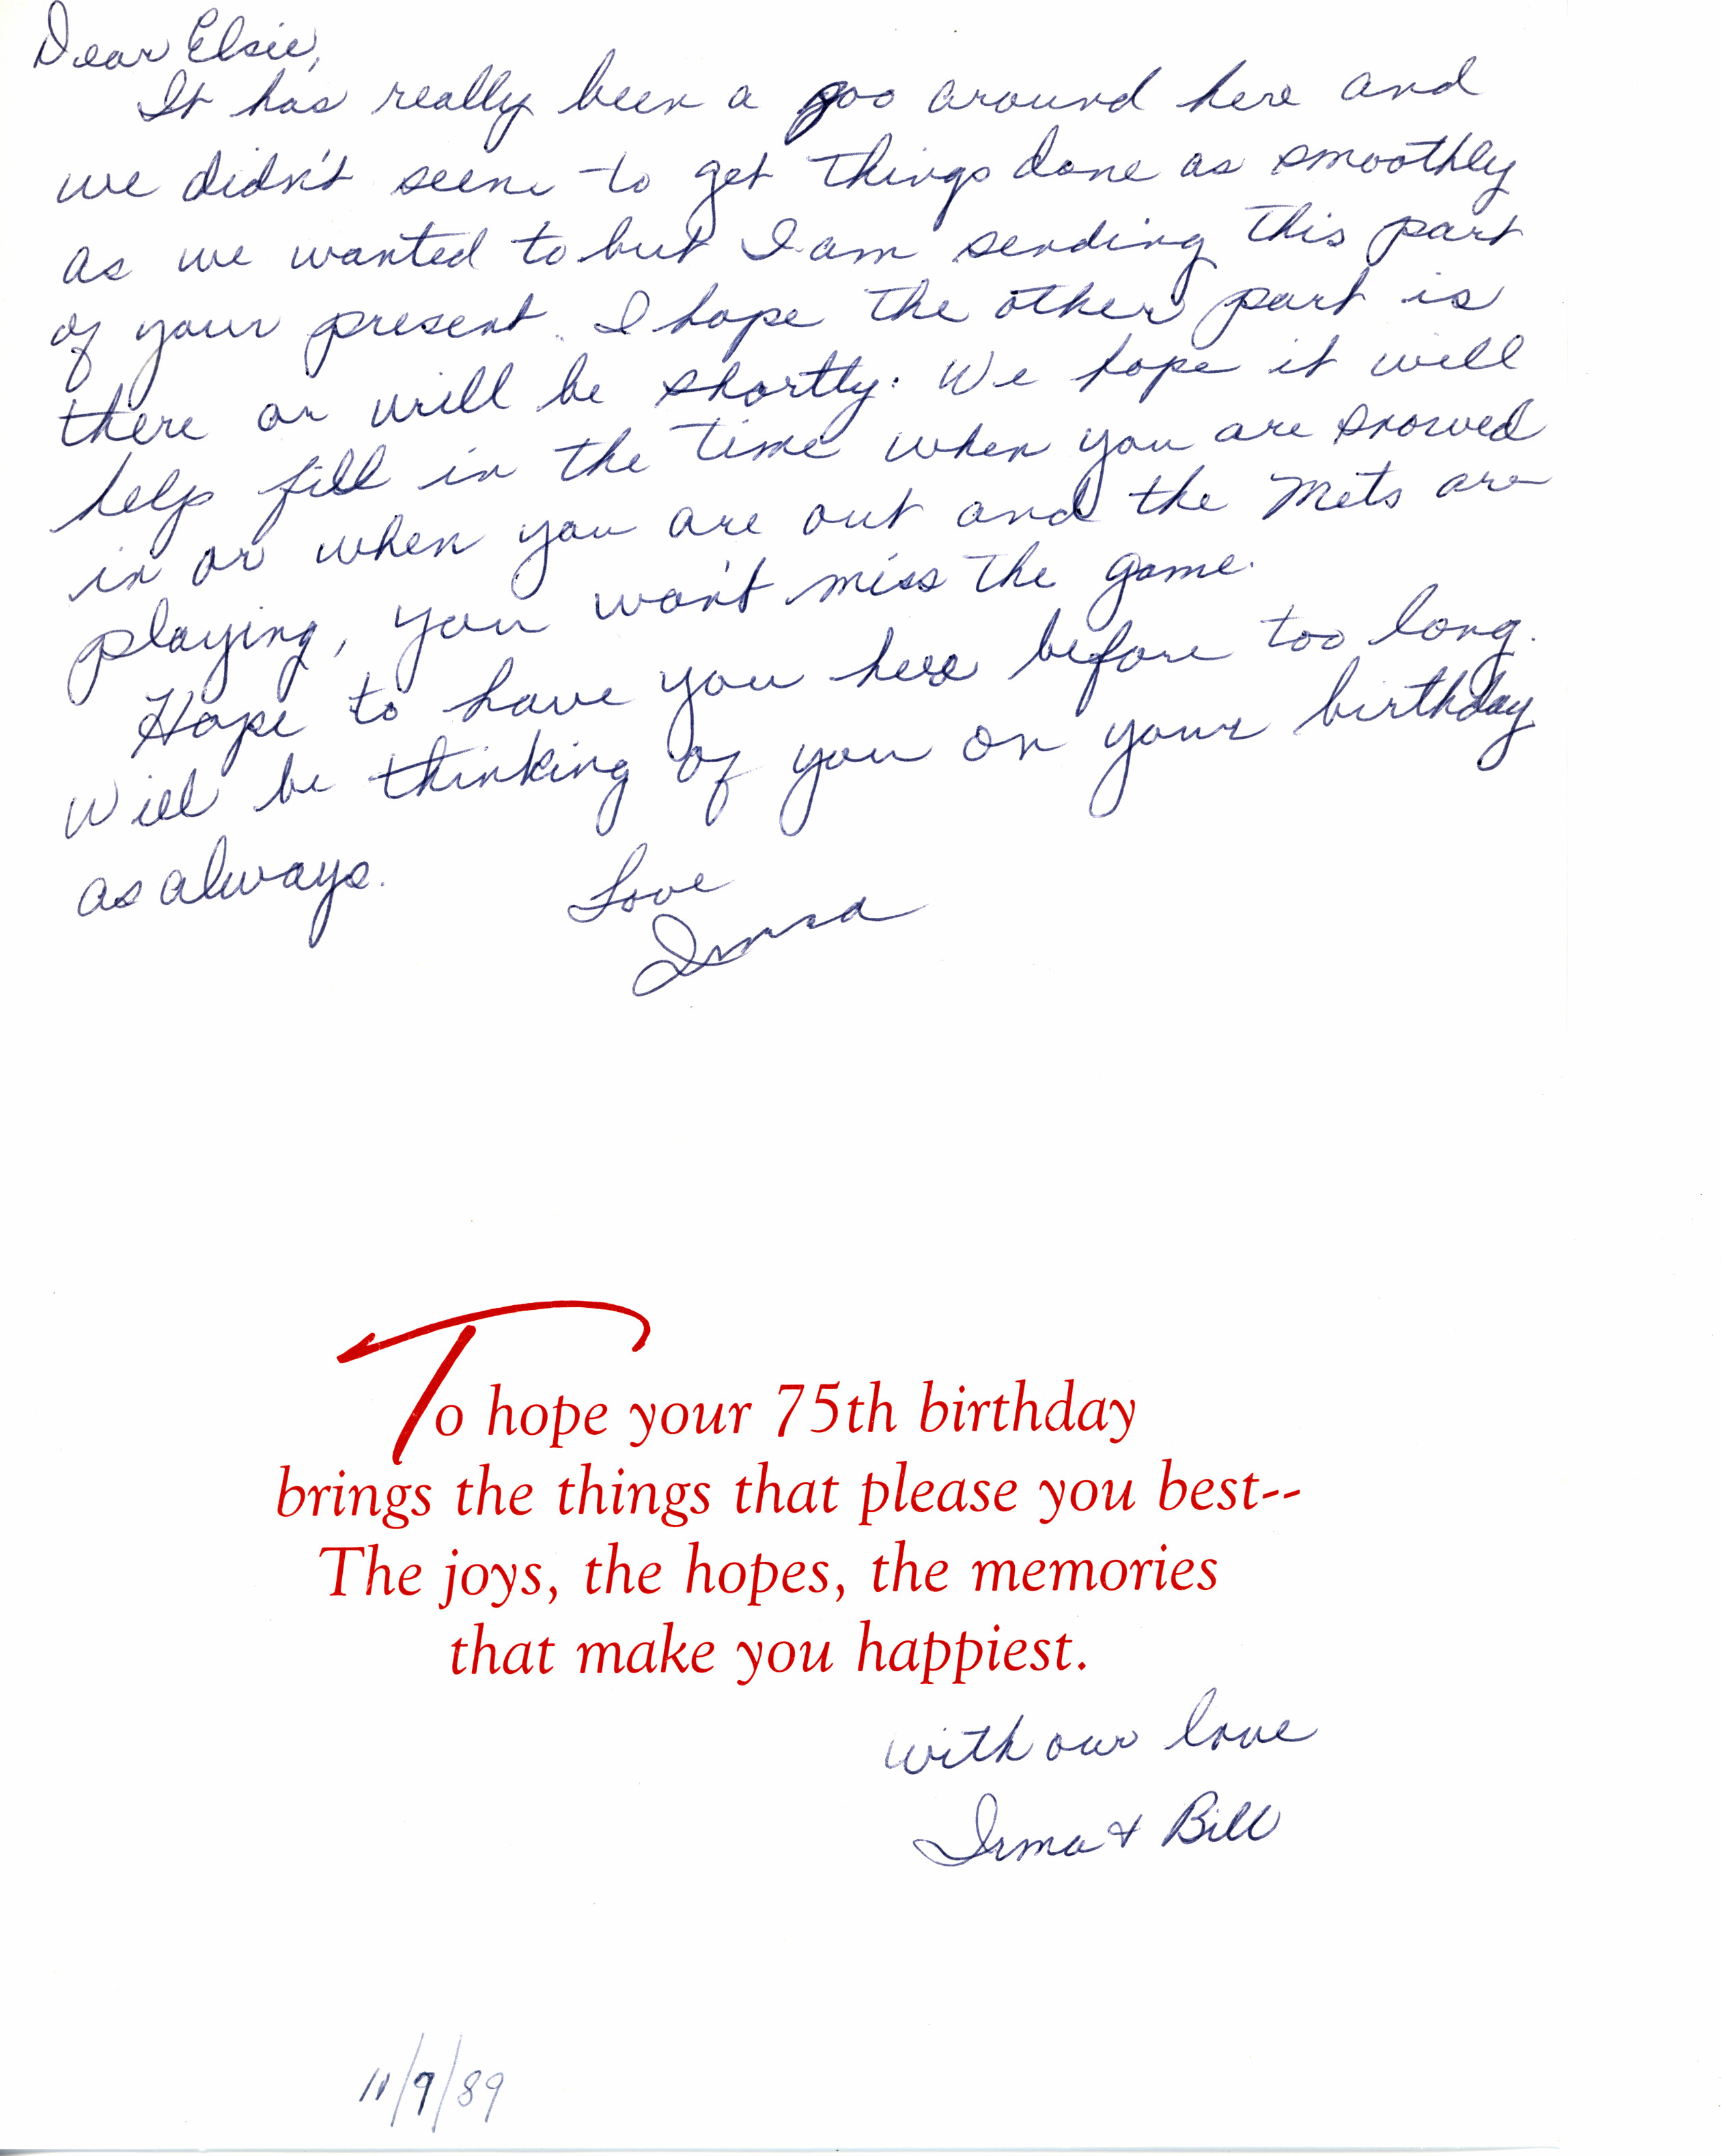 Dear Elsie,
It has really been a zoo around here and
we didn't seem to get things done as smoothly
as we wanted to but I am sending this part
of your present. I hope the other part is
there or will be shortly. We hope it will
help fill in the time when you are snowed
in or when you are out and the Mets are
playing, you won't miss the game.
Hope to have you here before too long.
Will be thinking of you on your birthday
as always.
Love
Irma
To hope your 75th birthday
brings the things that please you best--
The joys, the hopes, the memories
that make you happiest.
with our love
Irma & Bill
11/9/89